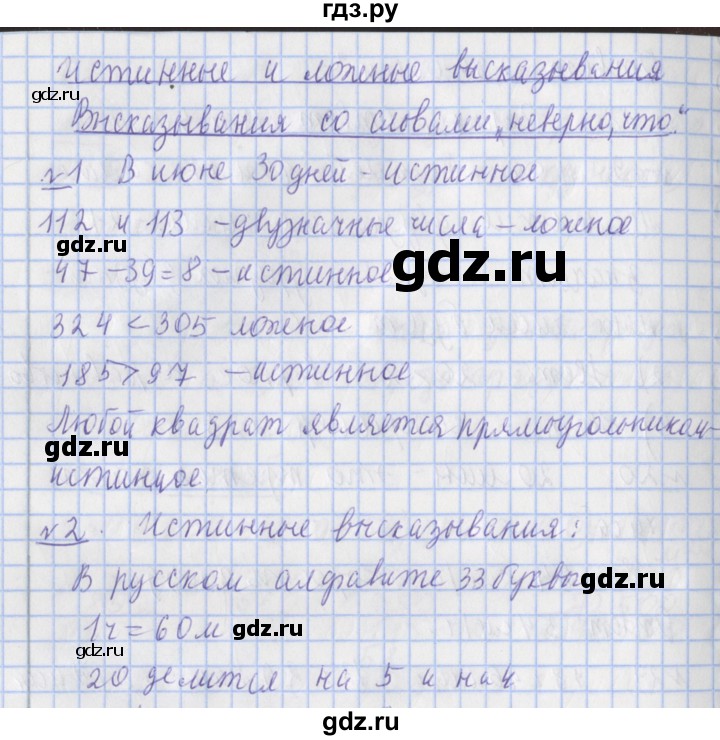 гдз.ру
Истинные и ложные высказывания
gdz.ru
Высказывания со словами „неверно, что“
№1 В июне 30 дней - истинное
112 и 113 - двузначные числа - ложное
gdz.ru
gdz.ru
47 - 39 = 8 - истинное
324 < 305 ложное
185 > 97 - истинное
Любой квадрат является прямоугольником -
gdz.ru
истинное.
№2. Истинные высказывания:
В русском алфавите 33 буквы
gdz.ru
1ч = 60м
gdz.ru
gdz.ru
20 делится на 5 и на 4
gdz.ru